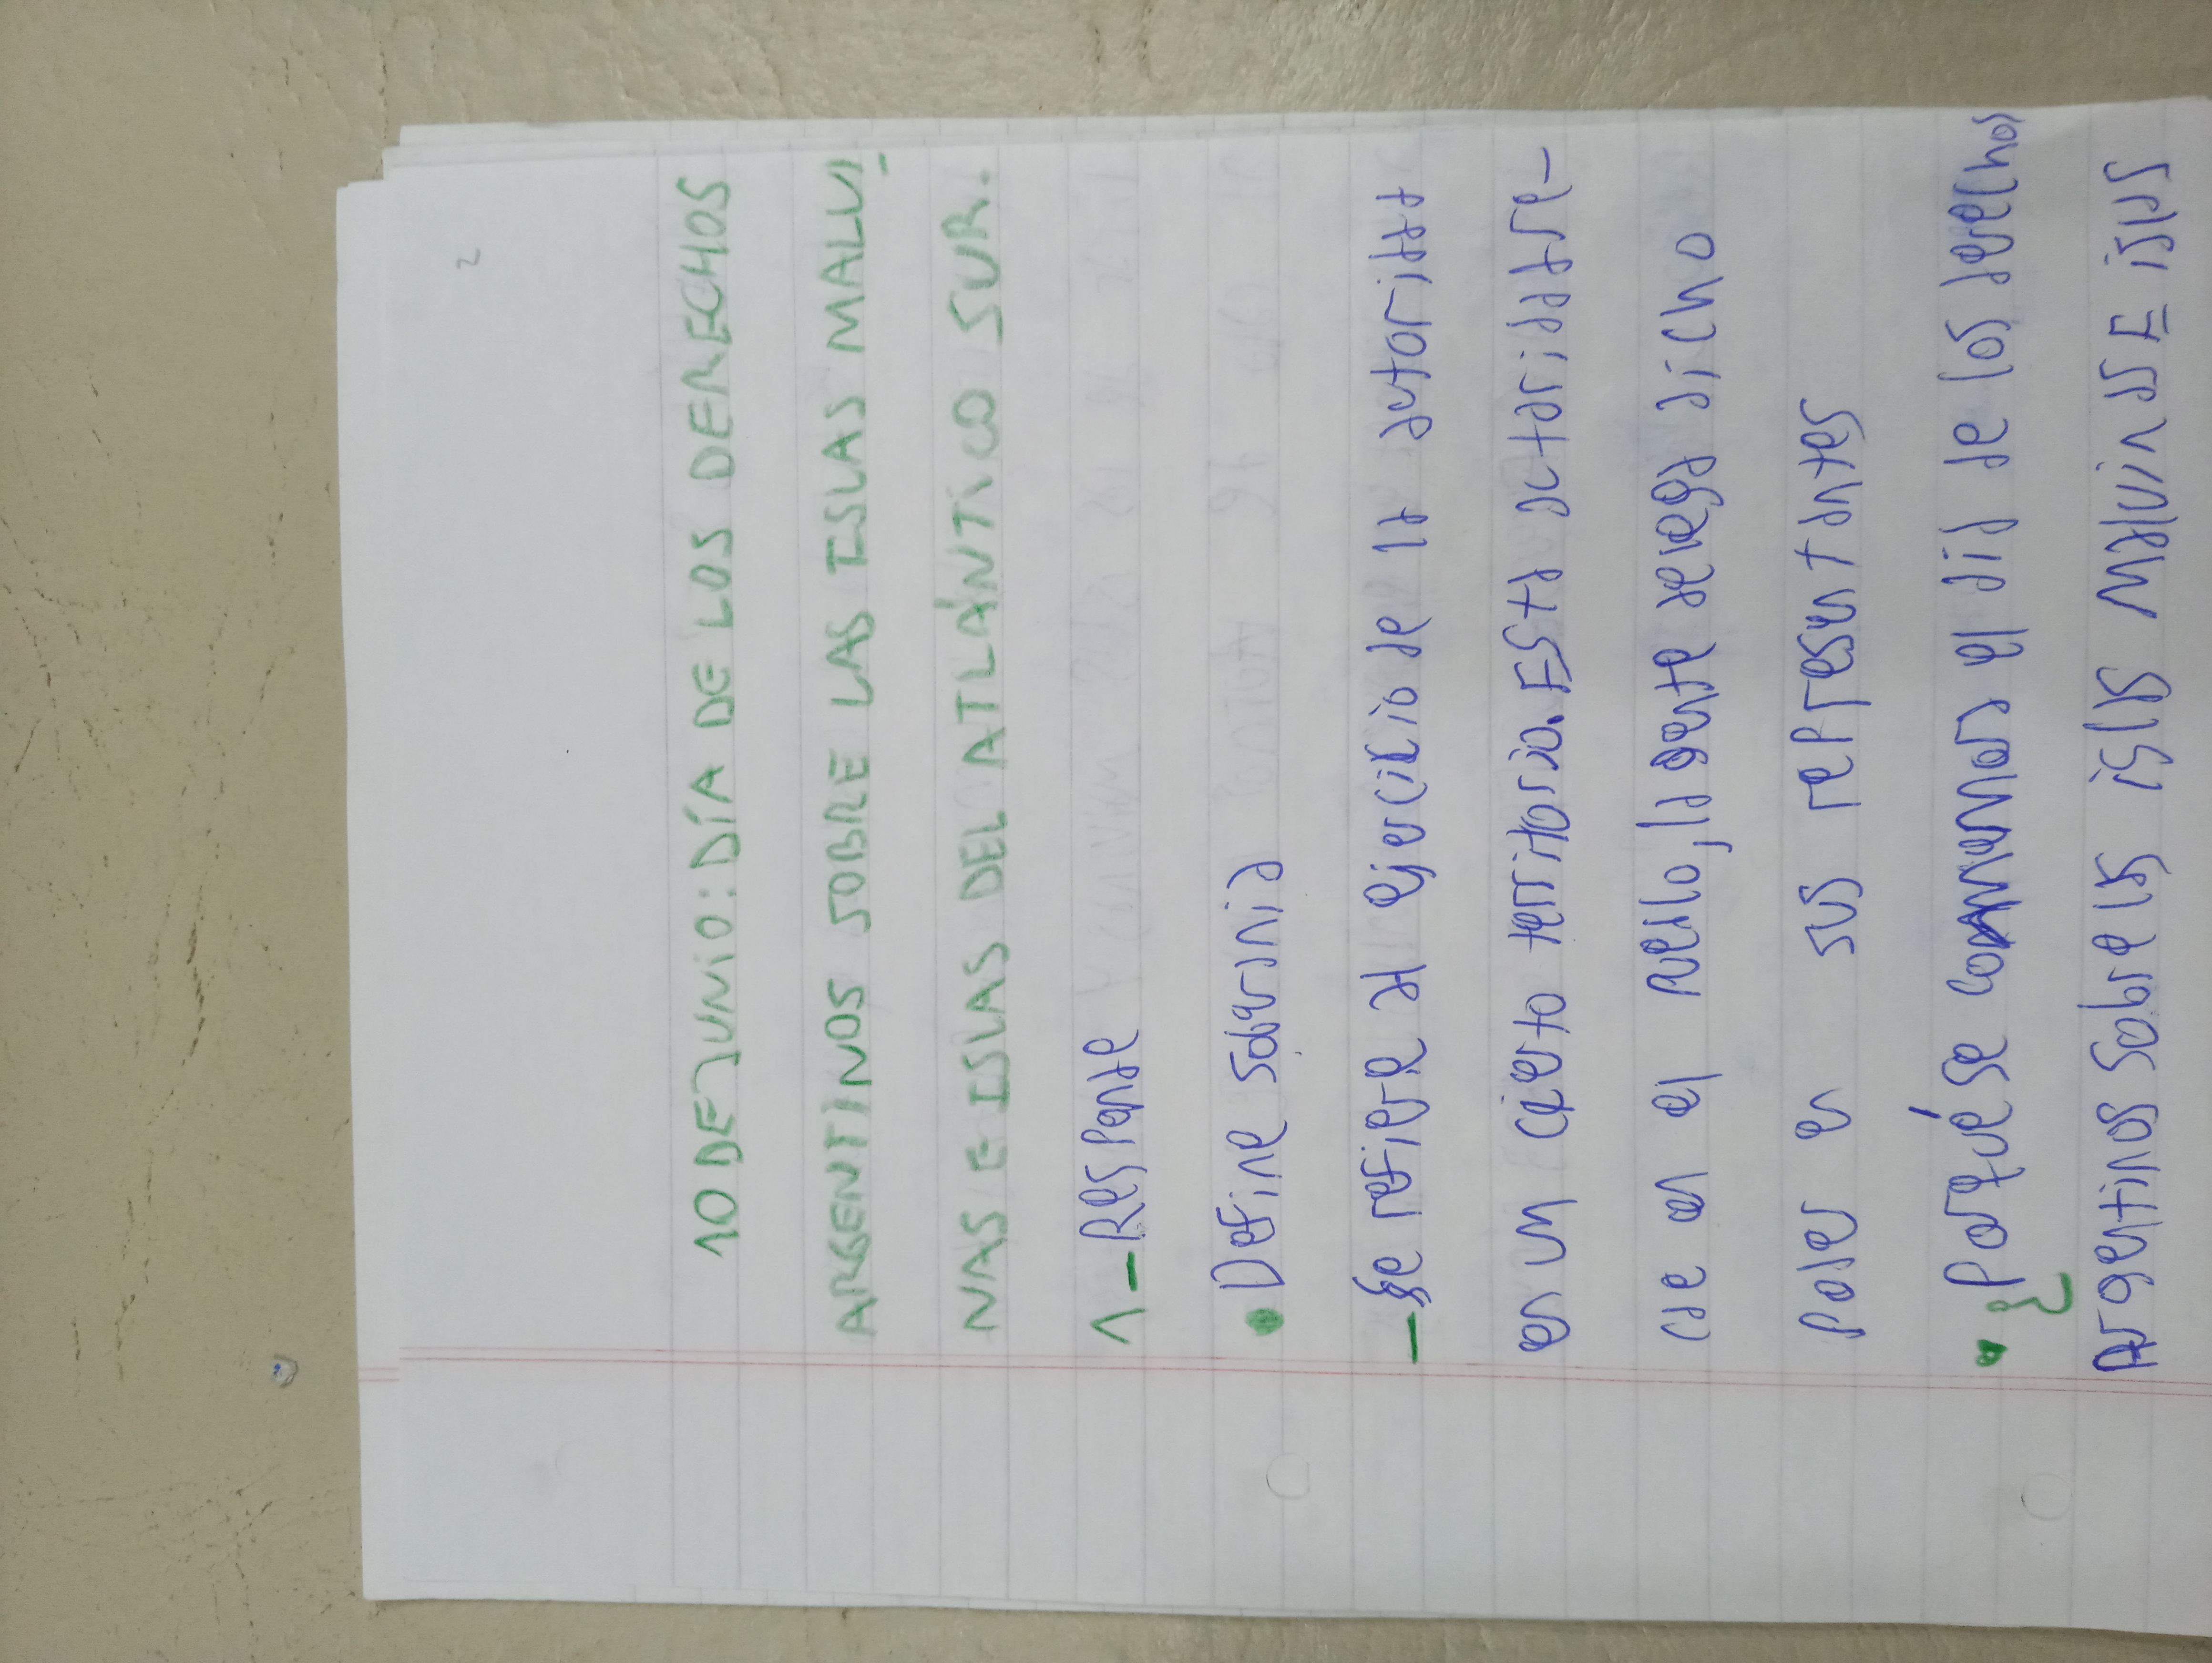 2
10 DE JUNIO: DÍA DE LOS DERECHOS
ARGENTINOS SOBRE LAS ISLAS MALVI
NAS E ISLAS DEL ATLÁNTICO SUR.
1_Responde
• Define
_ Se refiere al ejercicio de la autoridad
en un cierto territorio. Esta
en el
Poder en sus representantes
• ¿Porqué se conmemora el día de los derechos
argentinos sobre las islas Malvinas E islas